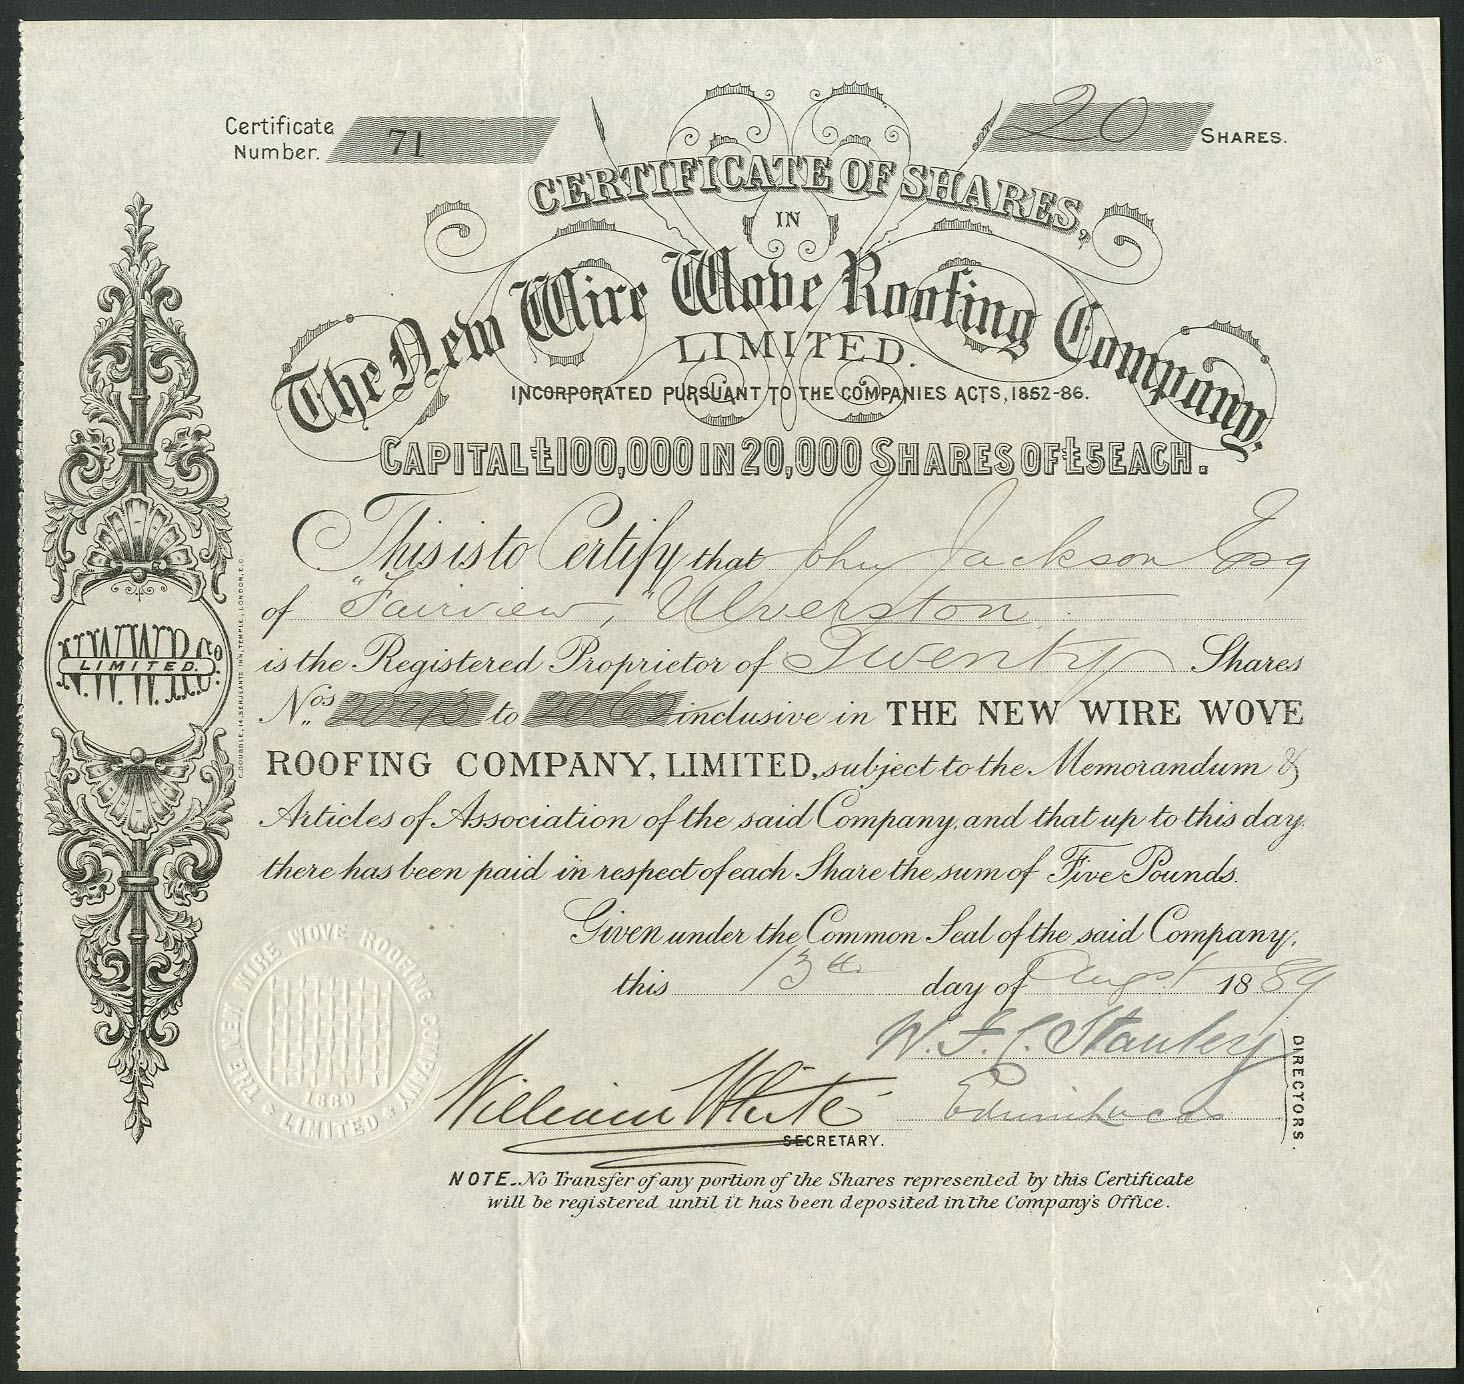 Certificate Number. 71
20 SHARES.
CERTIFICATE OF SHARES,
IN
The New Wire Wove Roofing Company,
LIMITED.
INCORPORATED PURSUANT TO THE COMPANIES ACTS, 1862-86.
CAPITAL £100,000 IN 20,000 SHARES OF £5 EACH.
This is to Certify that John Jackson Esq
of "Fairview, Ulverston
is the Registered Proprietor of Twenty Shares
Nos. 2043 to 2062 inclusive in THE NEW WIRE WOVE
ROOFING COMPANY, LIMITED, subject to the Memorandum &
Articles of Association of the said Company, and that up to this day
there has been paid in respect of each Share the sum of Five Pounds.
Given under the Common Seal of the said Company,
this 13th day of August 1889
W. F. C. Stanley
William White
Edwin Lucas
SECRETARY.
DIRECTORS.
NOTE. No Transfer of any portion of the Shares represented by this Certificate
will be registered until it has been deposited in the Company's Office.
N.W.W.R.Co.
LIMITED.
C. DOUBLE, 14, SERJEANTS INN, TEMPLE, LONDON, E.C.
THE NEW WIRE WOVE ROOFING COMPANY
LIMITED
1889